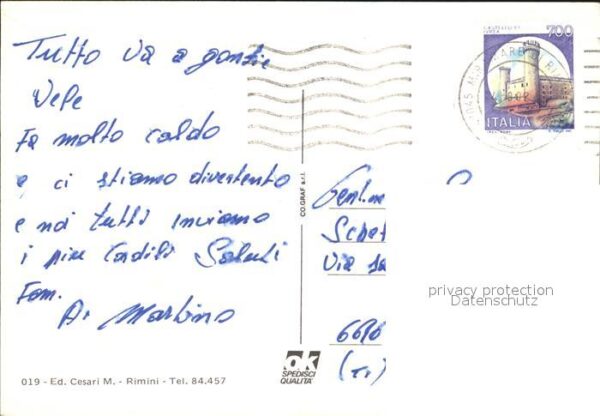 Tutto va a gonfie
Vele
Fa molto caldo
e ci stiamo divertento
e noi tutti inviamo
i piu Cordili Saluti
Fam.
Di Martino
019 - Ed. Cesari M. - Rimini - Tel. 84.457
CO.GRAF s.r.l.
ok
SPEDISCI
QUALITÀ
700
ITALIA
Gent.
Via
privacy protection
Datenschutz